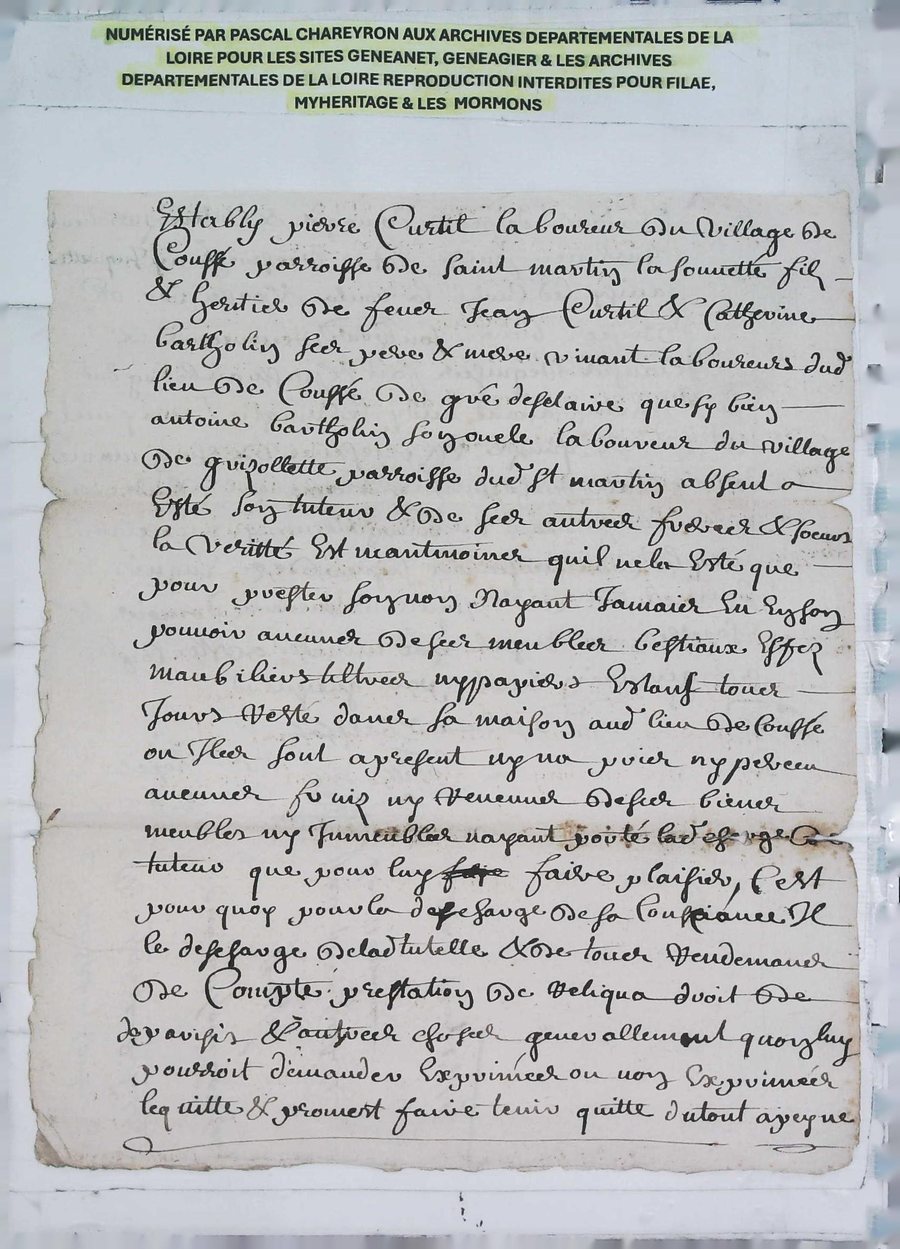 NUMÉRISÉ PAR PASCAL CHAREYRON AUX ARCHIVES DEPARTEMENTALES DE LA
LOIRE POUR LES SITES GENEANET, GENEAGIER & LES ARCHIVES
DEPARTEMENTALES DE LA LOIRE REPRODUCTION INTERDITES POUR FILAE,
MYHERITAGE & LES MORMONS
Establÿ pierre Curtil laboureur du village de
Couffé parroisse de saint martin la souuetté filz
& heritier de feues Jean Curtil & Catherine
bartholin ses pere & mere viuant laboureurs dud
lieu de Couffé de gré desclaire que sy bien
antoine bartholin son oncle laboureur du village
de grizollette parroisse dud st martin absent a
Esté son tuteur & de ses autres freres & soeurs
la veritté Est neantmoines quil ne la Esté que
pour prester son nom Nayant Jamais Eu En son
pouuoir aucunes de ses meubles bestiaux Effez
maubiliers tiltres ny papiers Estant tous
Jours Resté dans sa maison aud lieu de Couffé
ou Ils sont apresent ny na prier ny perceu
aucunes fruiz ny Reuenues de ses bienes
meubles ny Jmmeubles nayant porté lad charge de
tuteur que pour luy faire plaisir, C'est
pour quoy pour la descharge de sa Consciance Il
le descharge de lad tutelle & de toutes Rendemances
de Compte prestation de Reliqua droit de
& autres choses generallement quon luy
pourroit demander Exprimées ou non Exprimées
lequitte & promest faire tenir quitte du tout a peyne